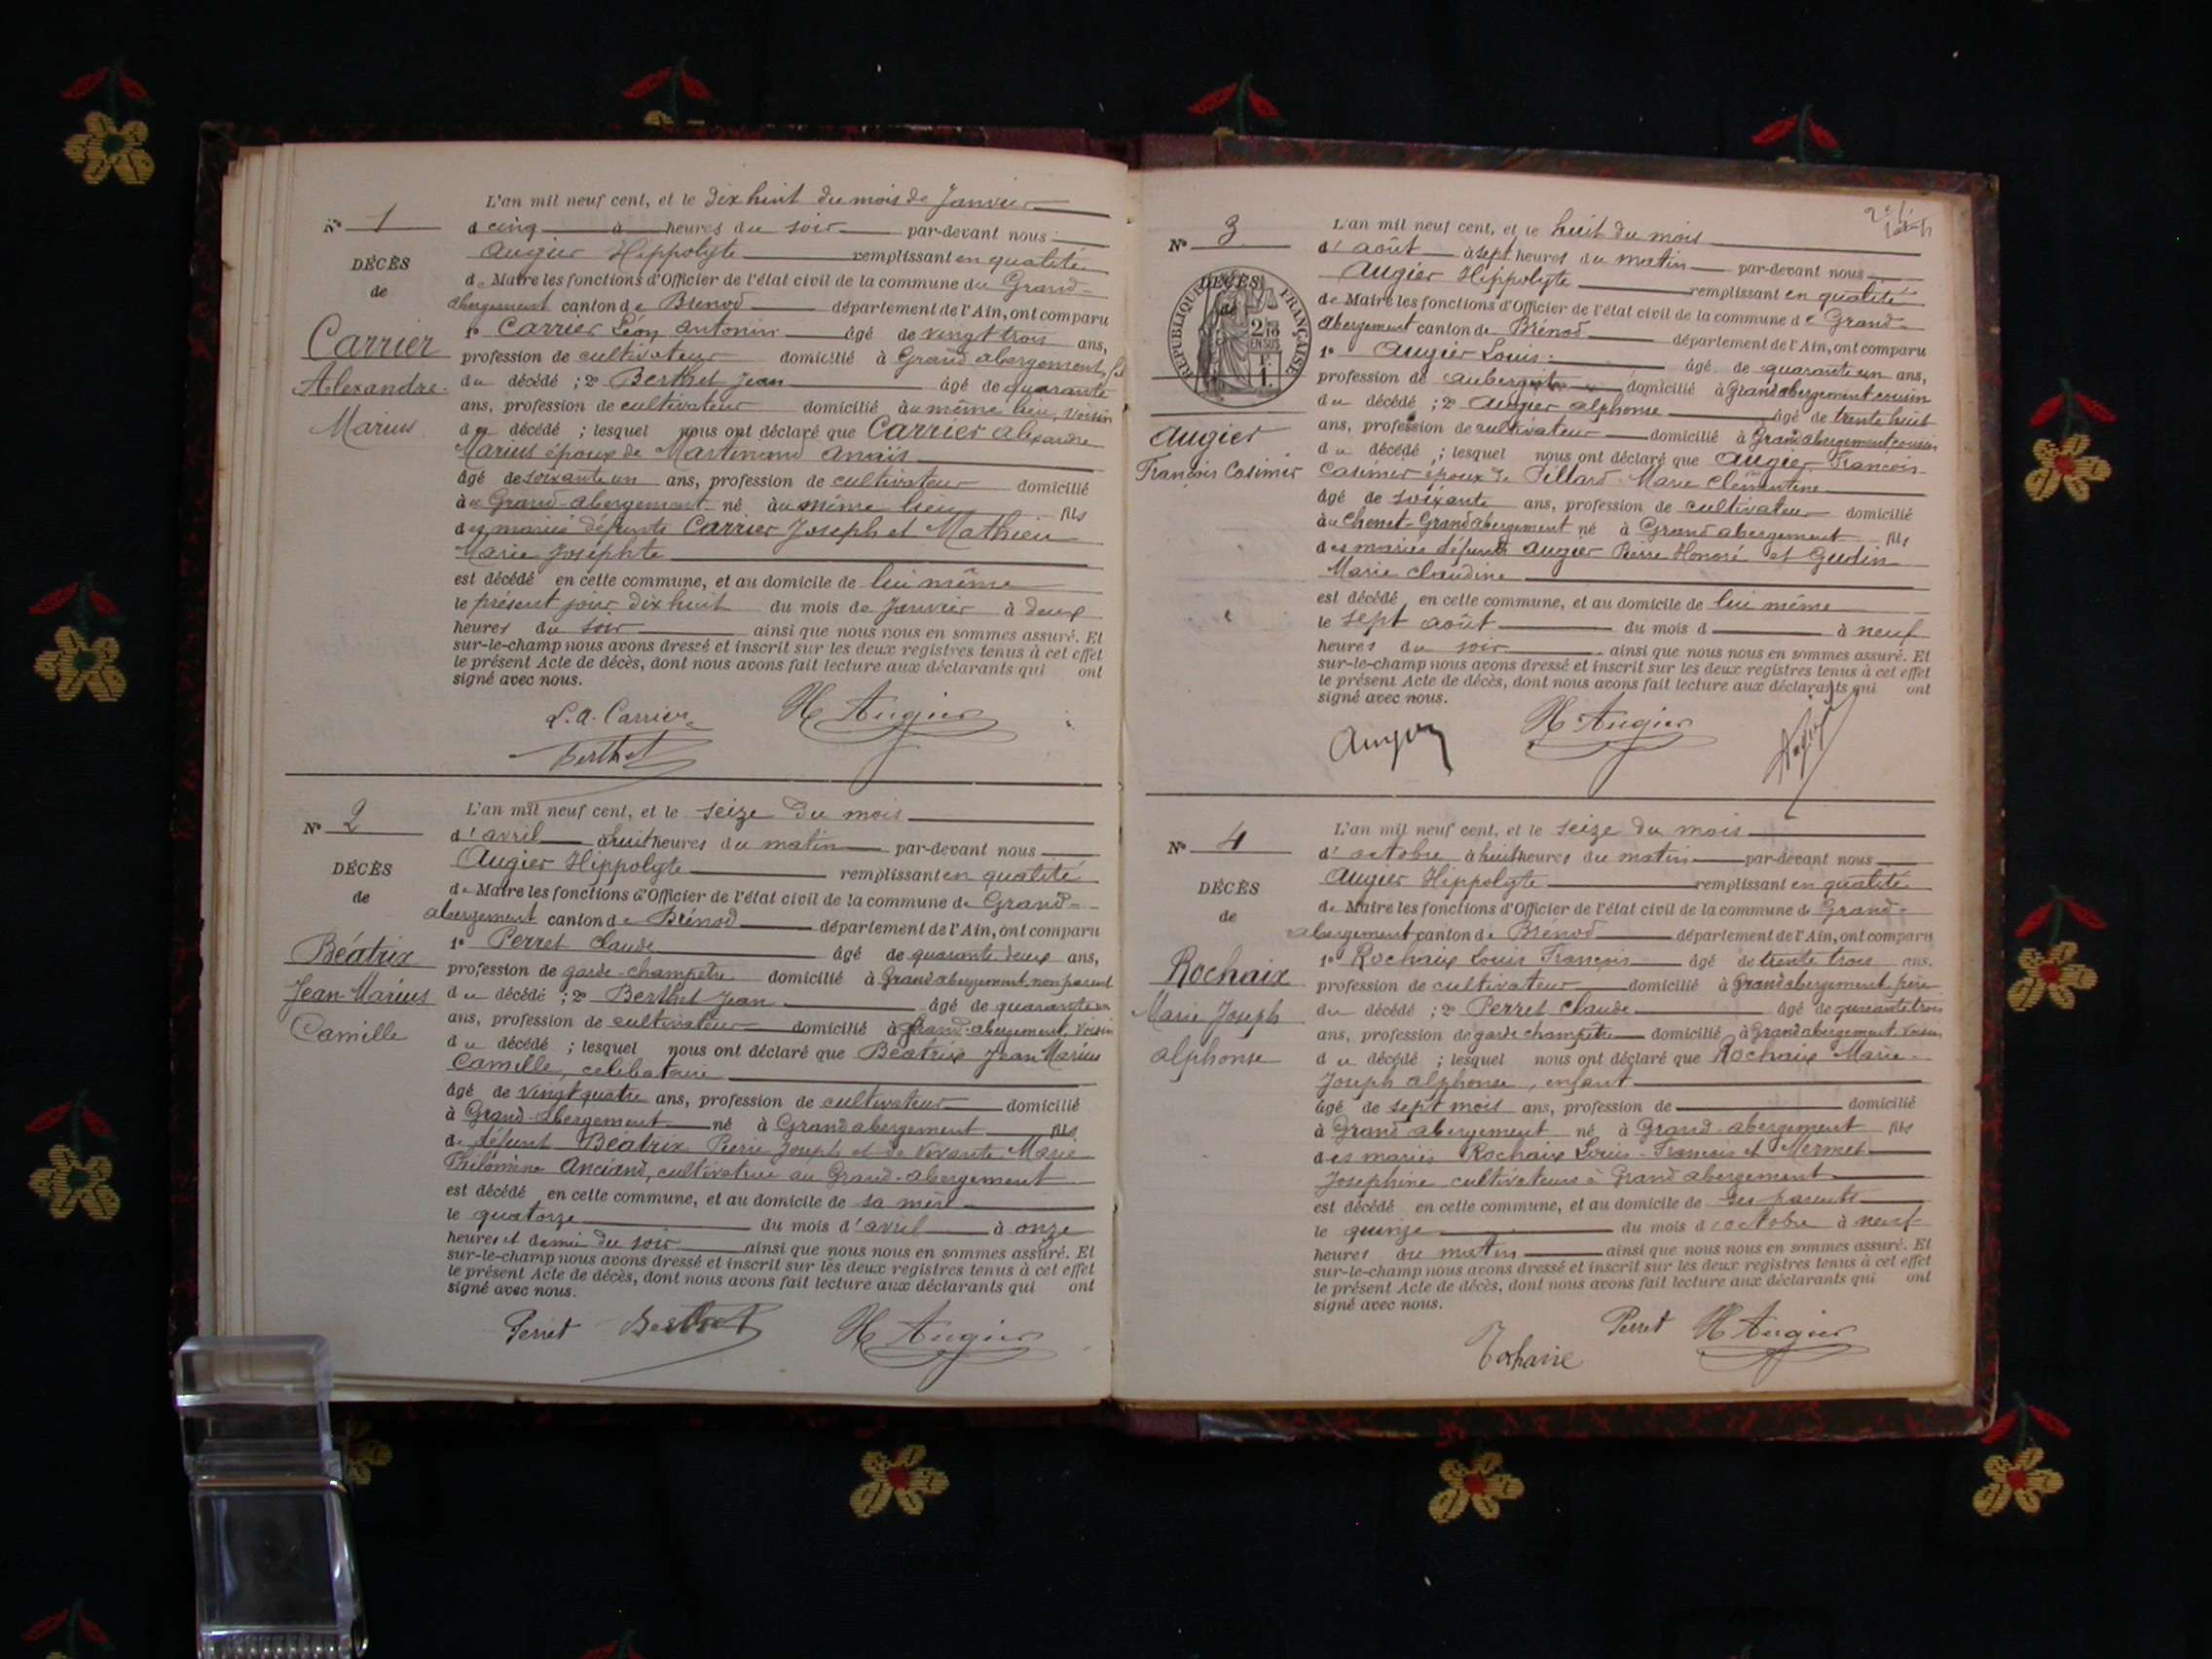 L'an mil neuf cent, et le dix huit du mois de Janvier
N° 1
à cinq heures du soir par-devant nous
Augier Hippolyte remplissant en qualité
DÉCÈS
de Maire les fonctions d'Officier de l'état civil de la commune du Grand-
de
abergement canton de Brénod département de l'Ain, ont comparu
1° Carrier Léon Antonin âgé de vingt trois ans,
Carrier
profession de cultivateur domicilié à Grand abergement, fils
Alexandre
du décédé ; 2° Berthet Jean âgé de quarante
ans, profession de cultivateur domicilié au même lieu, voisin
Marius
du décédé ; lesquel nous ont déclaré que Carrier Alexandre
Marius époux de Martinand Anaïs
âgé de soixante un ans, profession de cultivateur domicilié
au Grand-abergement né au même lieu fils
des mariés défunts Carrier Joseph et Mathieu
Marie Josephte
est décédé en cette commune, et au domicile de lui même
le présent jour dix huit du mois de Janvier à deux
heures du soir ainsi que nous nous en sommes assuré. Et
sur-le-champ nous avons dressé et inscrit sur les deux registres tenus à cet effet
le présent Acte de décès, dont nous avons fait lecture aux déclarants qui ont
signé avec nous.
L. A. Carrier H Augier
Berthet
L'an mil neuf cent, et le seize du mois
N° 2
d'avril à huit heures du matin par-devant nous
Augier Hippolyte remplissant en qualité
DÉCÈS
de Maire les fonctions d'Officier de l'état civil de la commune de Grand-
de
abergement canton de Brénod département de l'Ain, ont comparu
1° Perret Claude âgé de quarante deux ans,
Béatrix
profession de garde-champêtre domicilié à Grand abergement non parent
Jean-Marius
du décédé ; 2° Berthet Jean âgé de quarante
ans, profession de cultivateur domicilié à Grand-abergement, voisin
Camille
du décédé ; lesquel nous ont déclaré que Béatrix Jean Marius
Camille, célibataire
âgé de vingt quatre ans, profession de cultivateur domicilié
à Grand-abergement né à Grand abergement fils
de défunt Béatrix Pierre Joseph et de vivante Marie
Philomène Anciand, cultivatrice au Grand-abergement
est décédé en cette commune, et au domicile de sa mère
le quatorze du mois d'avril à onze
heures et demie du soir ainsi que nous nous en sommes assuré. Et
sur-le-champ nous avons dressé et inscrit sur les deux registres tenus à cet effet
le présent Acte de décès, dont nous avons fait lecture aux déclarants qui ont
signé avec nous.
Perret Berthet H Augier
L'an mil neuf cent, et le huit du mois
N° 3
d'août à sept heures du matin par-devant nous
Augier Hippolyte remplissant en qualité
DÉCÈS
de
RÉPUBLIQUE FRANÇAISE
2/10 EN SUS
F. 1.
de Maire les fonctions d'Officier de l'état civil de la commune de Grand-
abergement canton de Brénod département de l'Ain, ont comparu
1° Augier Louis âgé de quarante un ans,
profession de aubergiste domicilié à Grand abergement cousin
du décédé ; 2° Augier Alphonse âgé de trente huit
ans, profession de cultivateur domicilié à Grand abergement cousin
Augier
du décédé ; lesquel nous ont déclaré que Augier François
François Casimir
Casimir époux de Pillard Marie Clémentine
âgé de soixante ans, profession de cultivateur domicilié
au Chenet-Grand abergement né à Grand abergement fils
des mariés défunts Augier Pierre Honoré et Gudin
Marie Claudine
est décédé en cette commune, et au domicile de lui même
le sept août du mois d à neuf
heures du soir ainsi que nous nous en sommes assuré. Et
sur-le-champ nous avons dressé et inscrit sur les deux registres tenus à cet effet
le présent Acte de décès, dont nous avons fait lecture aux déclarants qui ont
signé avec nous.
Augier H Augier Augier
L'an mil neuf cent, et le seize du mois
N° 4
d'octobre à huit heures du matin par-devant nous
Augier Hippolyte remplissant en qualité
DÉCÈS
de Maire les fonctions d'Officier de l'état civil de la commune de Grand-
de
abergement canton de Brénod département de l'Ain, ont comparu
1° Rochaix Louis François âgé de trente trois ans.
Rochaix
profession de cultivateur domicilié à Grand abergement, père
Marie Joseph
du décédé ; 2° Perret Claude âgé de quarante trois
ans, profession de garde champêtre domicilié à Grand abergement voisin
Alphonse
du décédé ; lesquel nous ont déclaré que Rochaix Marie-
Joseph Alphonse, enfant
âgé de sept mois ans, profession de domicilié
à Grand abergement né à Grand-abergement fils
des mariés Rochaix Louis-François et Mermet
Josephine cultivateurs à Grand abergement
est décédé en cette commune, et au domicile de ses parents
le quinze du mois d'octobre à neuf
heures du matin ainsi que nous nous en sommes assuré. Et
sur-le-champ nous avons dressé et inscrit sur les deux registres tenus à cet effet
le présent Acte de décès, dont nous avons fait lecture aux déclarants qui ont
signé avec nous.
Perret H Augier